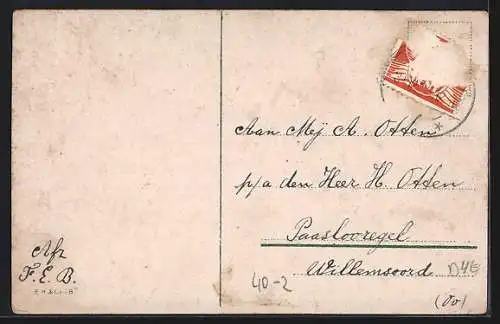 Aan Mej A. Otten
p/a den Heer H. Otten
Paaslooregel
Willemsoord
(Ov)
Afz
F. E. B.
40-2